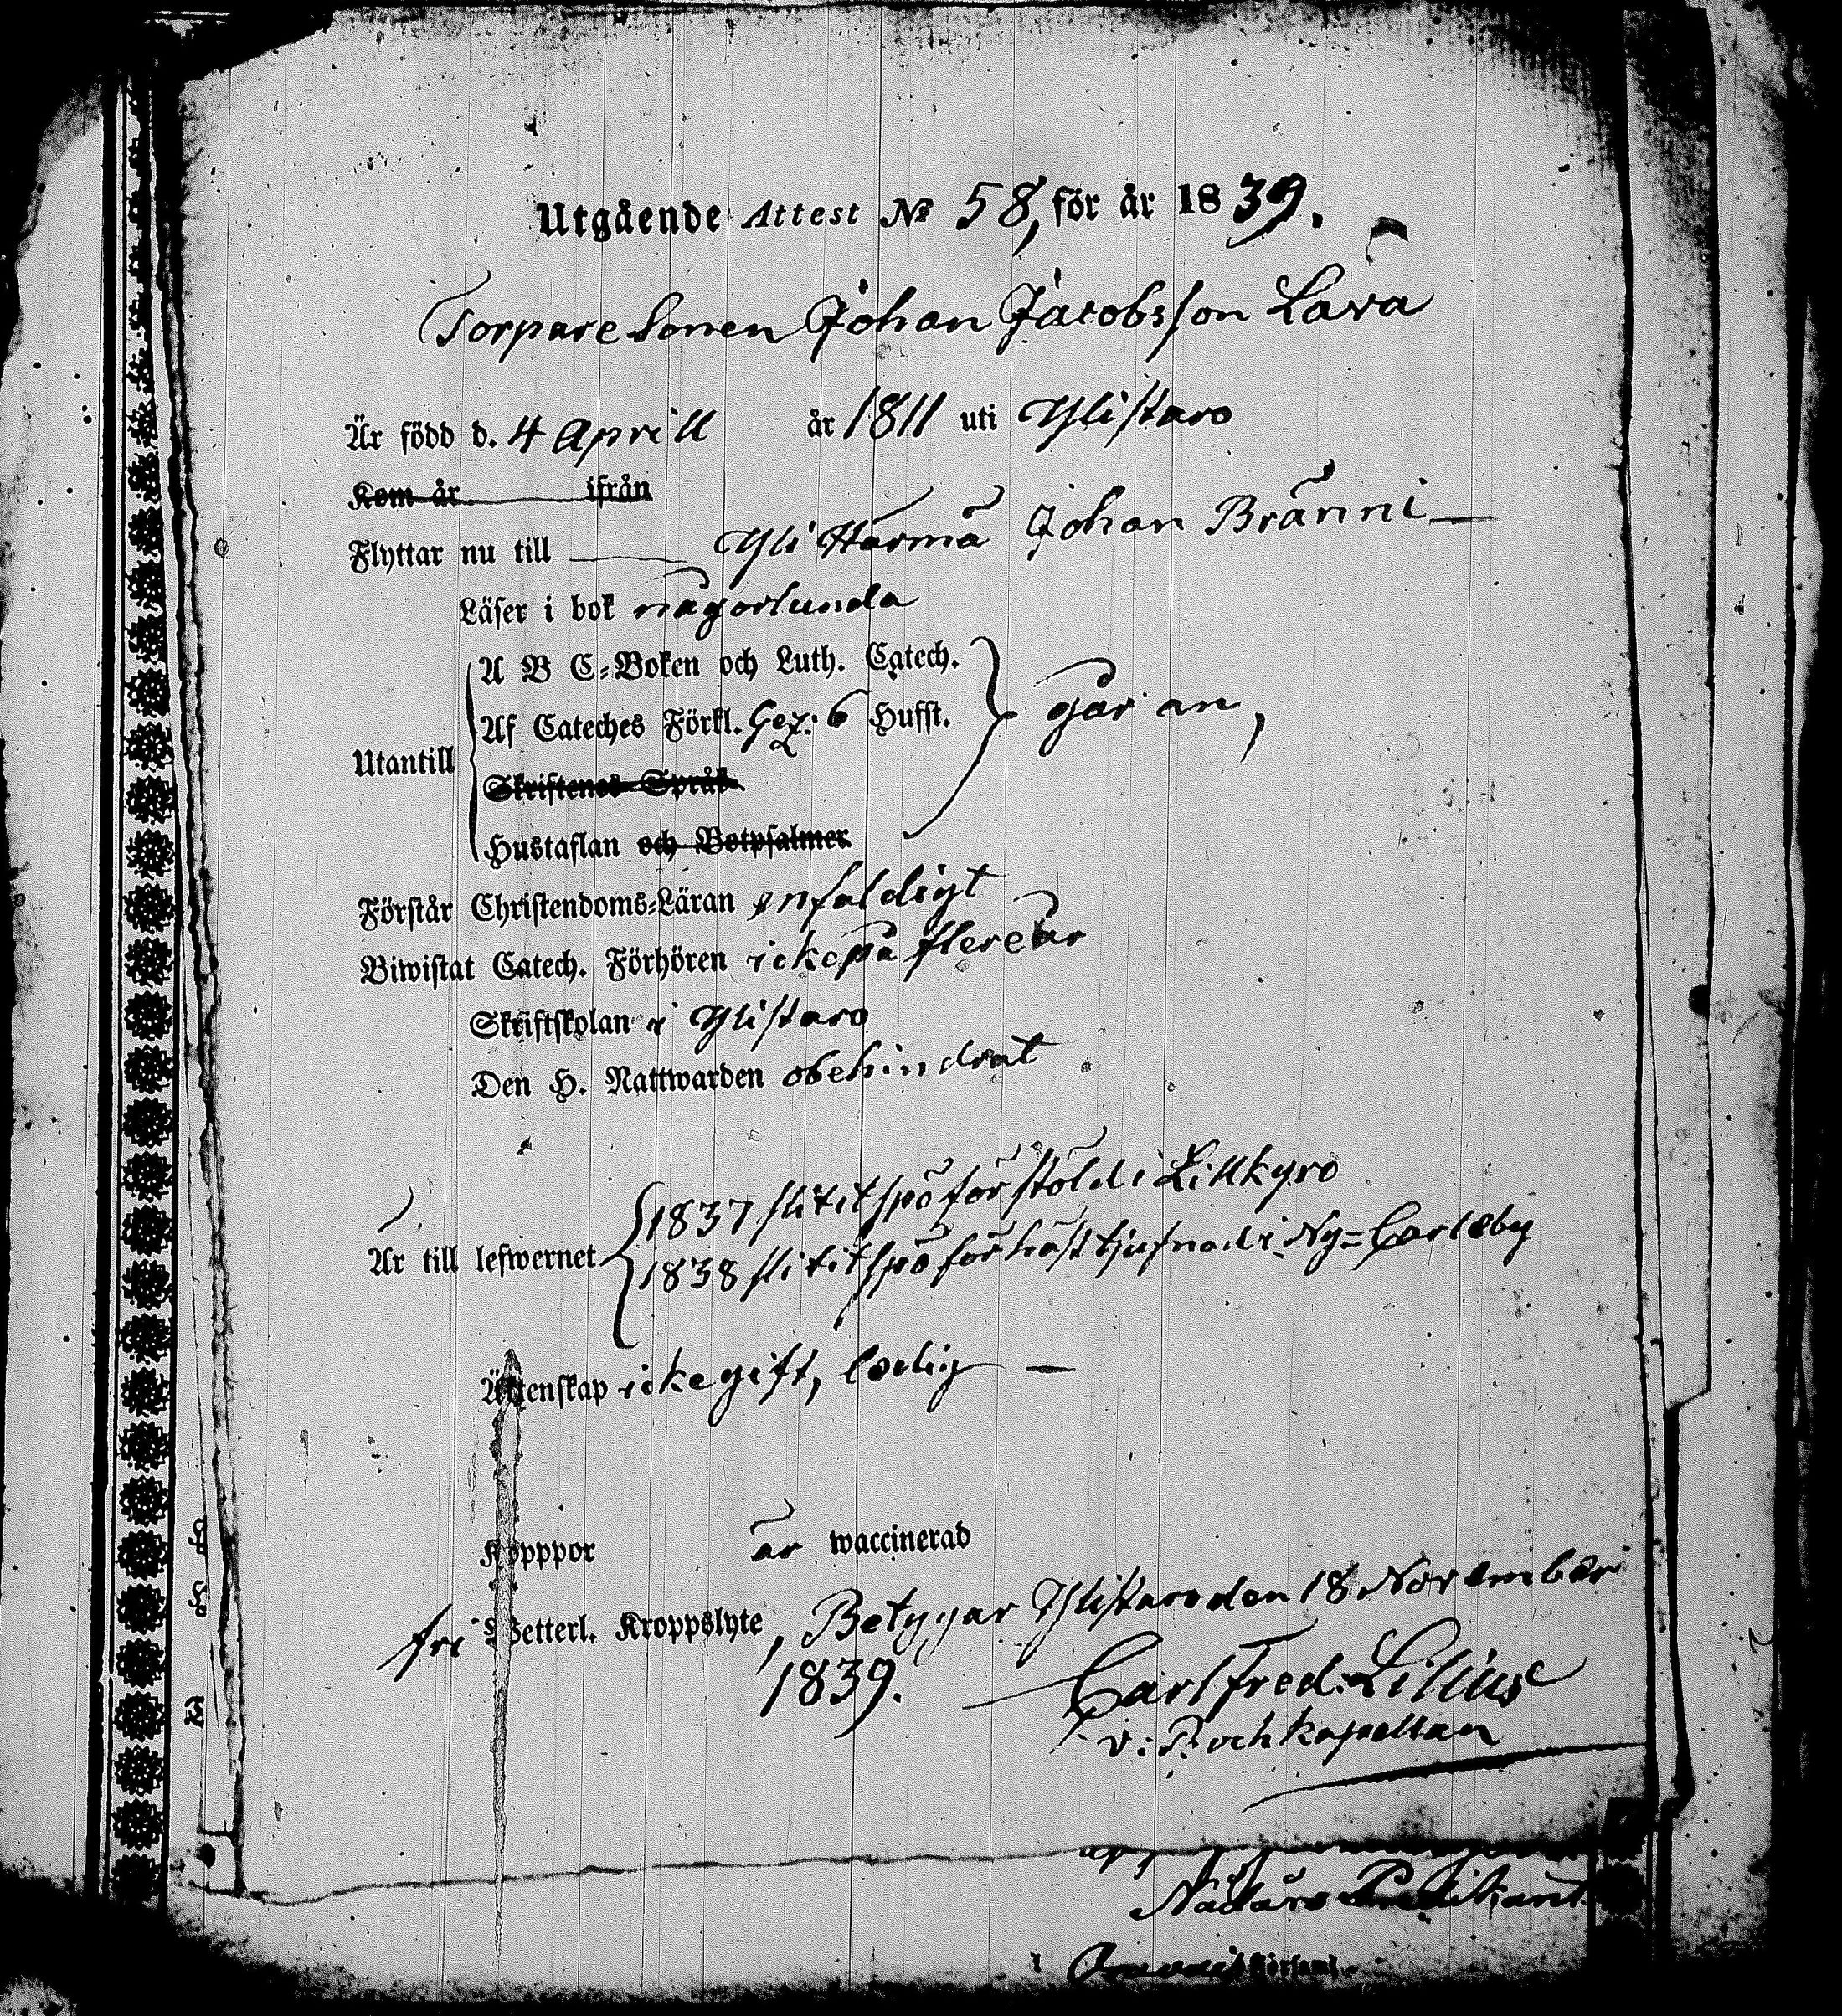 Utgående Attest No 58, för år 1839.
Torpare Sonen Johan Jacobsson Lava
Är född d. 4 Aprill år 1811 uti Ylistaro
Kom år ifrån
Flyttar nu till Yli Härmä Johan Bränni
Läser i bok någorlunda
A B C-Boken och Luth. Catech.
Af Cateches Förkl. Gez: 6 Hufst. går an,
Utantill
Skriftenes Språk
Hustaflan och Botpsalmer
Förstår Christendoms-Läran enfaldigt
Biwistat Catech. Förhören icke på flere år
Skriftskolan i Ylistaro
Den H. Nattwarden obehindrat
1837 slitit spö för stöld i Lillkyro
Är till lefwernet
1838 slitit spö för hästtjufnad i Ny=Carleby
Äktenskap icke gift, ledig
Kopppor är waccinerad
fri Wetterl. Kroppslyte, Betygar Ylistaro den 18 November
1839. Carl Fred: Lilius
v: P. och kapellan
Nådårs Predikant